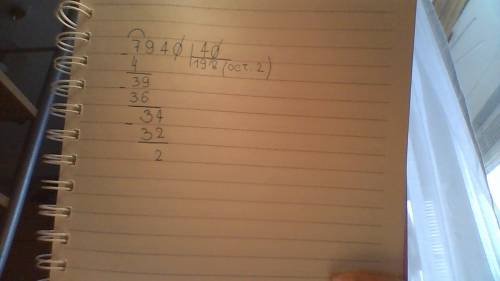 7940 |40
- 4 198 (ост. 2)
39
- 36
34
- 32
2